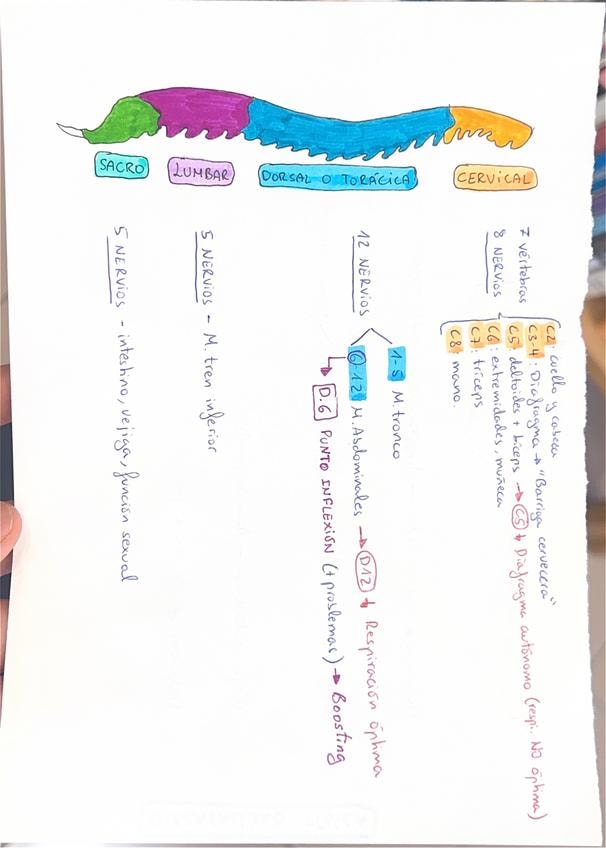 SACRO
LUMBAR
DORSAL O TORÁCICA
CERVICAL
7 vértebras
8 NERVIOS
C2: cuello y cabeza
C3-4: Diafragma → "Barriga cervecera"
C5: deltoides + bíceps → C5 ↓ Diafragma autónomo (respi. NO óptima)
C6: extremidades, muñeca
C7: tríceps
C8: mano.
12 NERVIOS
1-5 M. tronco
6-12 M. Abdominales → D12 ↓ Respiración óptima
D.6 PUNTO INFLEXIÓN (+ problemas) → Boosting
5 NERVIOS - M. tren inferior
5 NERVIOS - intestino, vejiga, función sexual